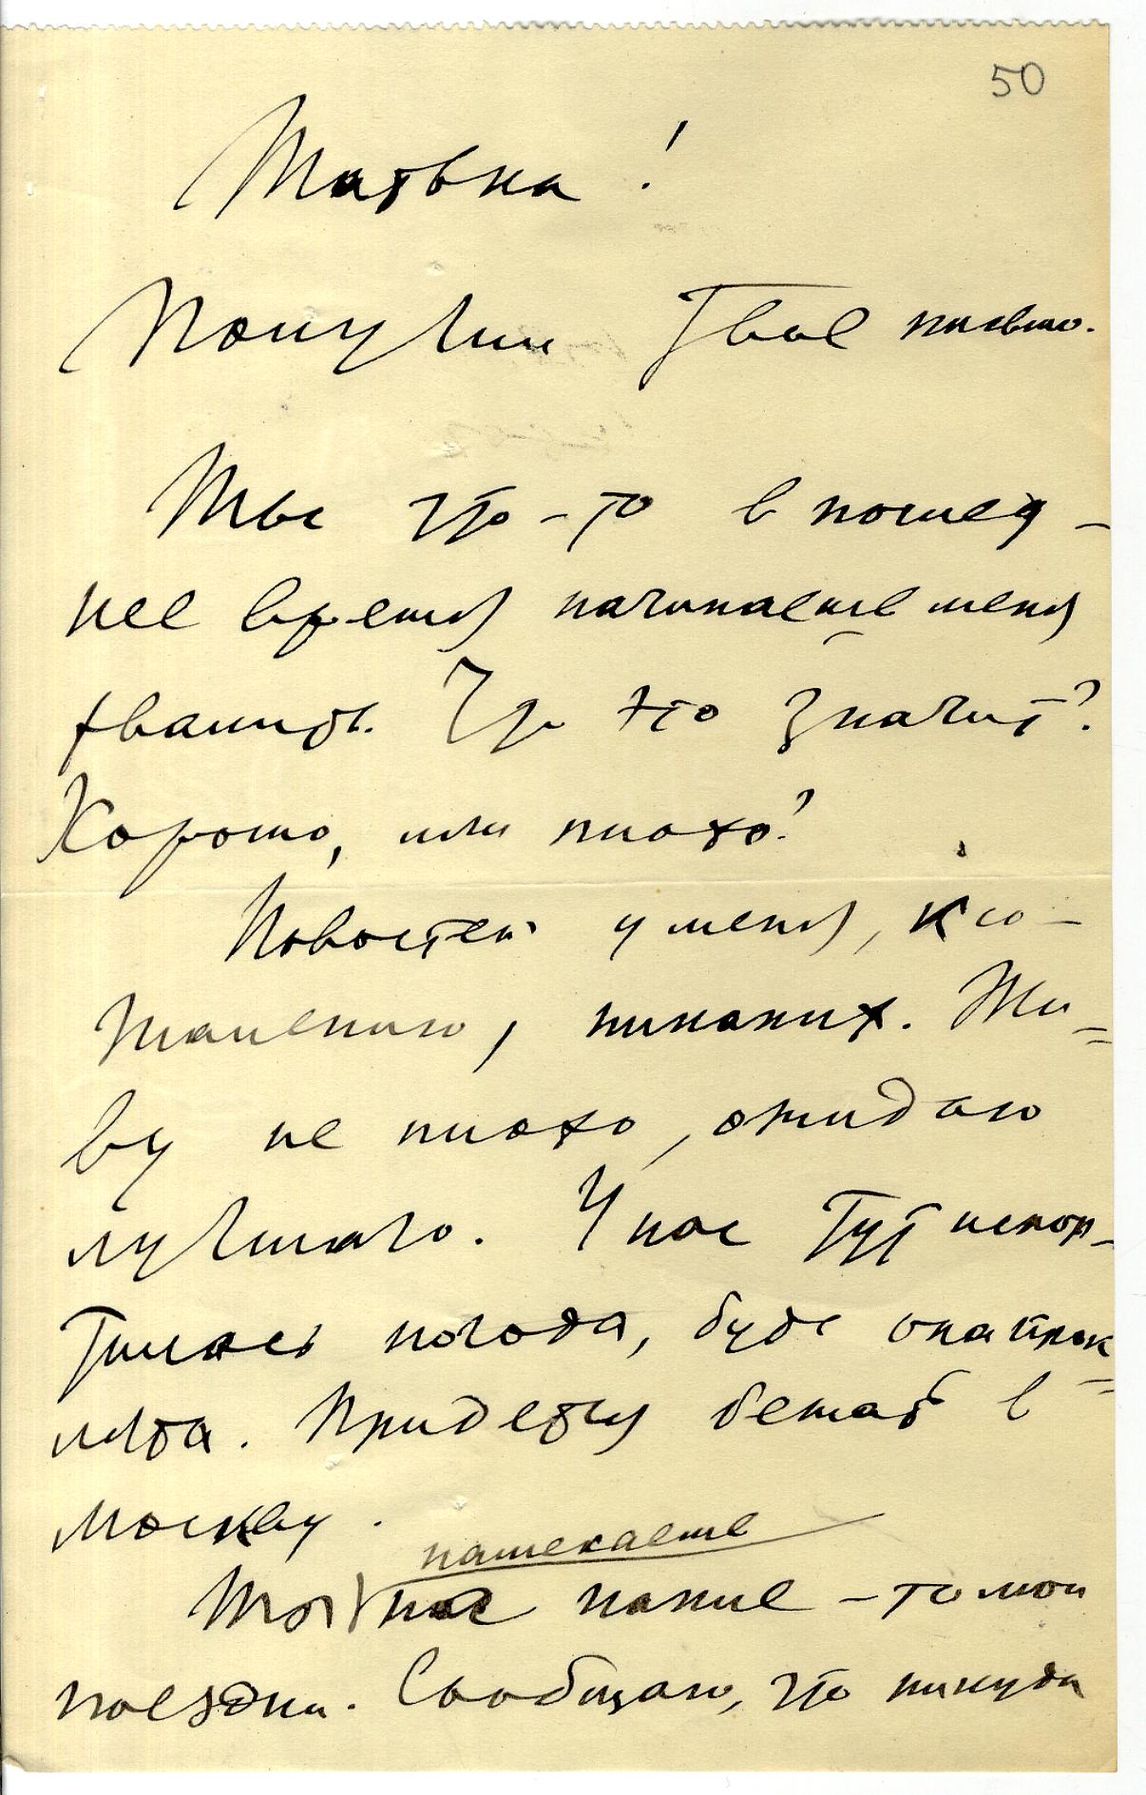 50
Татька!
Получил Твое письмо.
Ты что-то в послед-
нее время начинаеше меня
хвалить. Что это значит?
Хорошо, или плохо?
Новостей у меня, к со-
жалению, никаких. Жи-
ву не плохо, ожидаю
лучшаго. У нас Тут испор-
тилась погода, будь она прок
лята. Придется бежать в
Москву.
намекаеше
Ты на какие-то мои
поездки. Сообщаю, что никуда